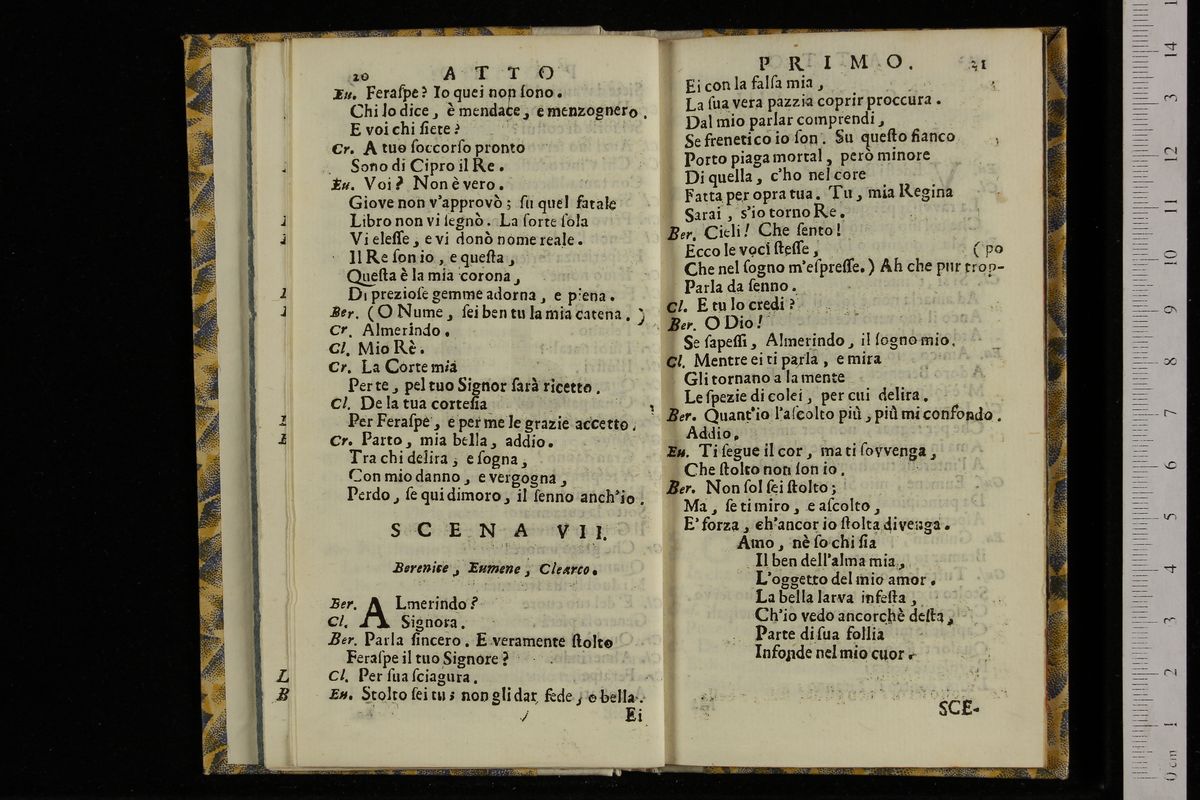 20 ATTO
Eu. Feraſpe? Io quei non ſono.
Chi lo dice, è mendace, e menzognero.
E voi chi ſiete?
Cr. A tuo ſoccorſo pronto
Sono di Cipro il Re.
Eu. Voi? Non è vero.
Giove non v'approvò; ſu quel fatale
Libro non vi ſegnò. La ſorte ſola
Vi eleſſe, e vi donò nome reale.
Il Re ſon io, e queſta,
Queſta è la mia corona,
Di prezioſe gemme adorna, e piena.
Ber. (O Nume, ſei ben tu la mia catena.)
Cr. Almerindo.
Cl. Mio Rè.
Cr. La Corte mia
Per te, pel tuo Signor ſarà ricetto.
Cl. De la tua corteſia
Per Feraſpe, e per me le grazie accetto.
Cr. Parto, mia bella, addio.
Tra chi delira, e ſogna,
Con mio danno, e vergogna,
Perdo, ſe qui dimoro, il ſenno anch'io.
SCENA VII.
Berenice, Eumene, Clearco.
Ber. ALmerindo?
Cl. Signora.
Ber. Parla ſincero. E veramente ſtolto
Feraſpe il tuo Signore?
Cl. Per ſua ſciagura.
Eu. Stolto ſei tu; non gli dar fede, o bella.
Ei
PRIMO. 21
Ei con la falſa mia,
La ſua vera pazzia coprir proccura.
Dal mio parlar comprendi,
Se frenetico io ſon. Su queſto fianco
Porto piaga mortal, però minore
Di quella, c'ho nel core
Fatta per opra tua. Tu, mia Regina
Sarai, s'io torno Re.
Ber. Cieli! Che ſento!
Ecco le voci ſteſſe, (po
Che nel ſogno m'eſpreſſe.) Ah che pur trop-
Parla da ſenno.
Cl. E tu lo credi?
Ber. O Dio!
Se ſapeſſi, Almerindo, il ſogno mio.
Cl. Mentre ei ti parla, e mira
Gli tornano a la mente
Le ſpezie di colei, per cui delira.
Ber. Quant'io l'aſcolto più, più mi confondo.
Addio.
Eu. Ti ſegue il cor, ma ti ſovvenga,
Che ſtolto non ſon io.
Ber. Non ſol ſei ſtolto;
Ma, ſe ti miro, e aſcolto,
E' forza, ch'ancor io ſtolta divenga.
Amo, nè ſo chi ſia
Il ben dell'alma mia,
L'oggetto del mio amor.
La bella larva infeſta,
Ch'io vedo ancorchè deſta,
Parte di ſua follia
Infonde nel mio cuor.
SCE-